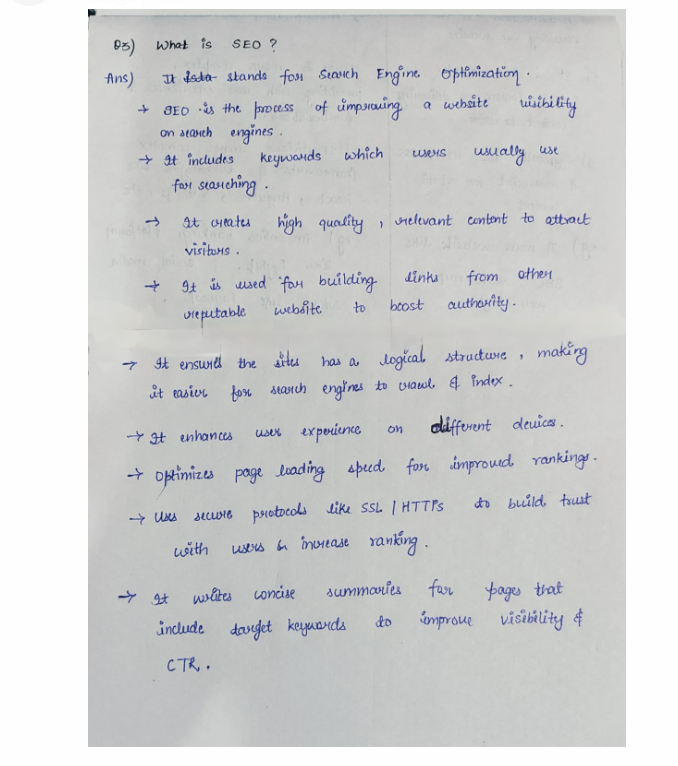 Q3) What is SEO ?
Ans) It stands for Search Engine Optimization.
→ SEO is the process of improving a website visibility
on search engines.
→ It includes keywords which users usually use
for searching.
→ It creates high quality, relevant content to attract
visitors.
→ It is used for building links from other
reputable website to boost authority.
→ It ensures the sites has a logical structure, making
it easier for search engines to crawl & index.
→ It enhances user experience on different devices.
→ Optimizes page loading speed for improved rankings.
→ Uses secure protocols like SSL / HTTPs to build trust
with users & increase ranking.
→ It writes concise summaries for pages that
include target keywords to improve visibility &
CTR.